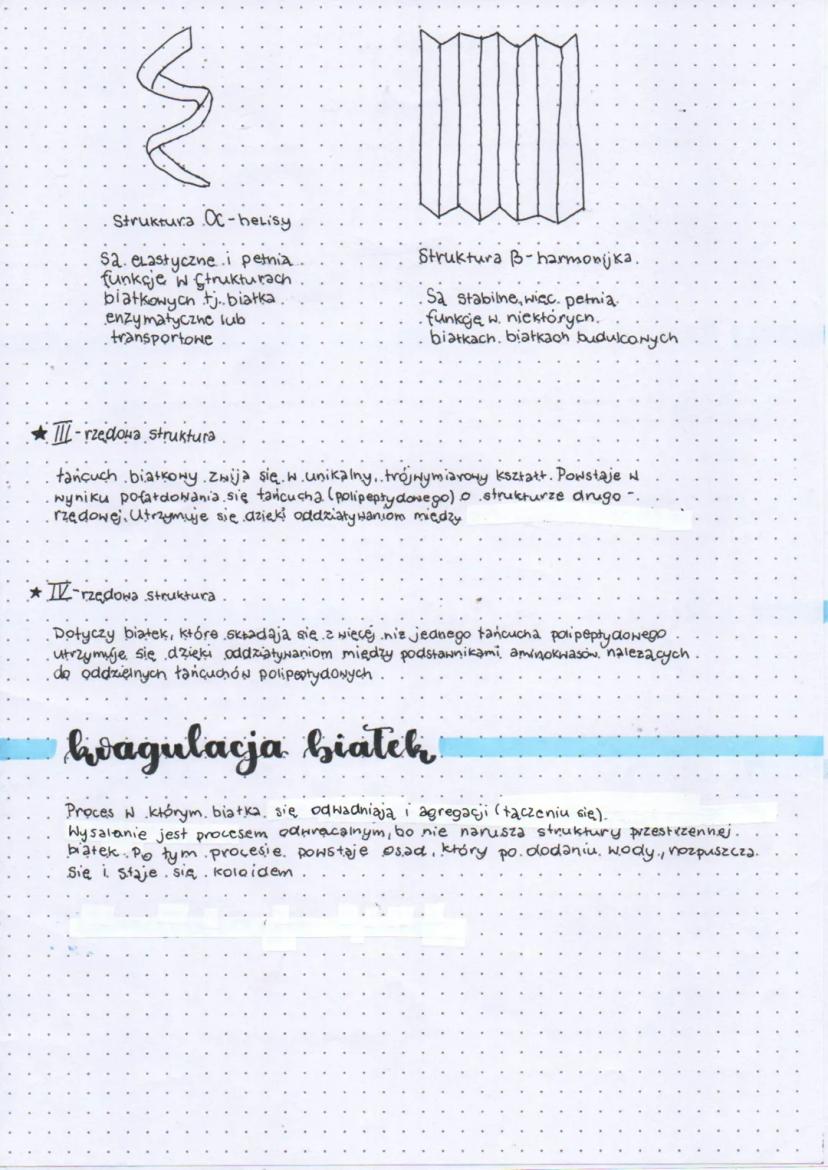 Struktura α-helisy
Są elastyczne i pełnią
funkcje w strukturach
białkowych tj. białka
enzymatyczne lub
transportowe
Struktura β-harmonijka
Są stabilne, więc pełnią
funkcję w niektórych
białkach białkach budulcowych
★ III-rzędowa struktura
Łańcuch białkowy zwija się w unikalny, trójwymiarowy kształt. Powstaje w
wyniku pofałdowania się łańcucha (polipeptydowego) o strukturze drugo-
rzędowej. Utrzymuje się dzięki oddziaływaniom między
★ IV-rzędowa struktura
Dotyczy białek, które składają się z więcej niż jednego łańcucha polipeptydowego
utrzymuje się dzięki oddziaływaniom między podstawnikami aminokwasów należących
do oddzielnych łańcuchów polipeptydowych
koagulacja białek
Proces w którym białka się odwadniają i agregacji (łączeniu się).
Wysalanie jest procesem odwracalnym, bo nie narusza struktury przestrzennej
białek. Po tym procesie powstaje osad, który po dodaniu wody, rozpuszcza
się i staje się koloidem